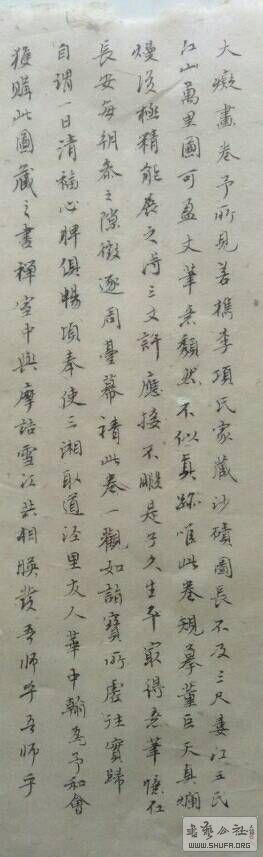 大癡畫卷予所見善檇李項氏家藏沙磧圖長不及三尺婁江王氏
江山萬里圖可盈丈筆意頹然不似真跡唯此卷規摹董巨天真爛
熳復極精能展之得三丈許應接不暇是子久生平最得意筆憶在
長安每朝參之隙徵逐周臺幕請此卷一觀如詣寶所虛往實歸
自謂一日清福心脾俱暢頃奉使三湘取道涇里友人華中翰為予和會
獲購此圖藏之畫禪室中與摩詰雪江共相暎發吾師乎吾師乎
书艺公社
WWW.SHUFA.ORG